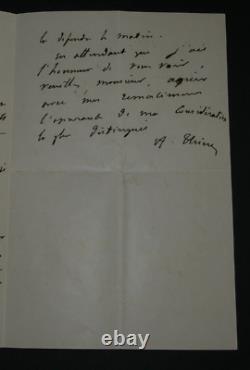 le dépendre le matin.
en attendant que j'aie
l'honneur de vous voir,
veuillez, monsieur, agréer
avec mes remerciemens
l'assurance de ma considération
la plus distinguée
A. Thiers
ebay